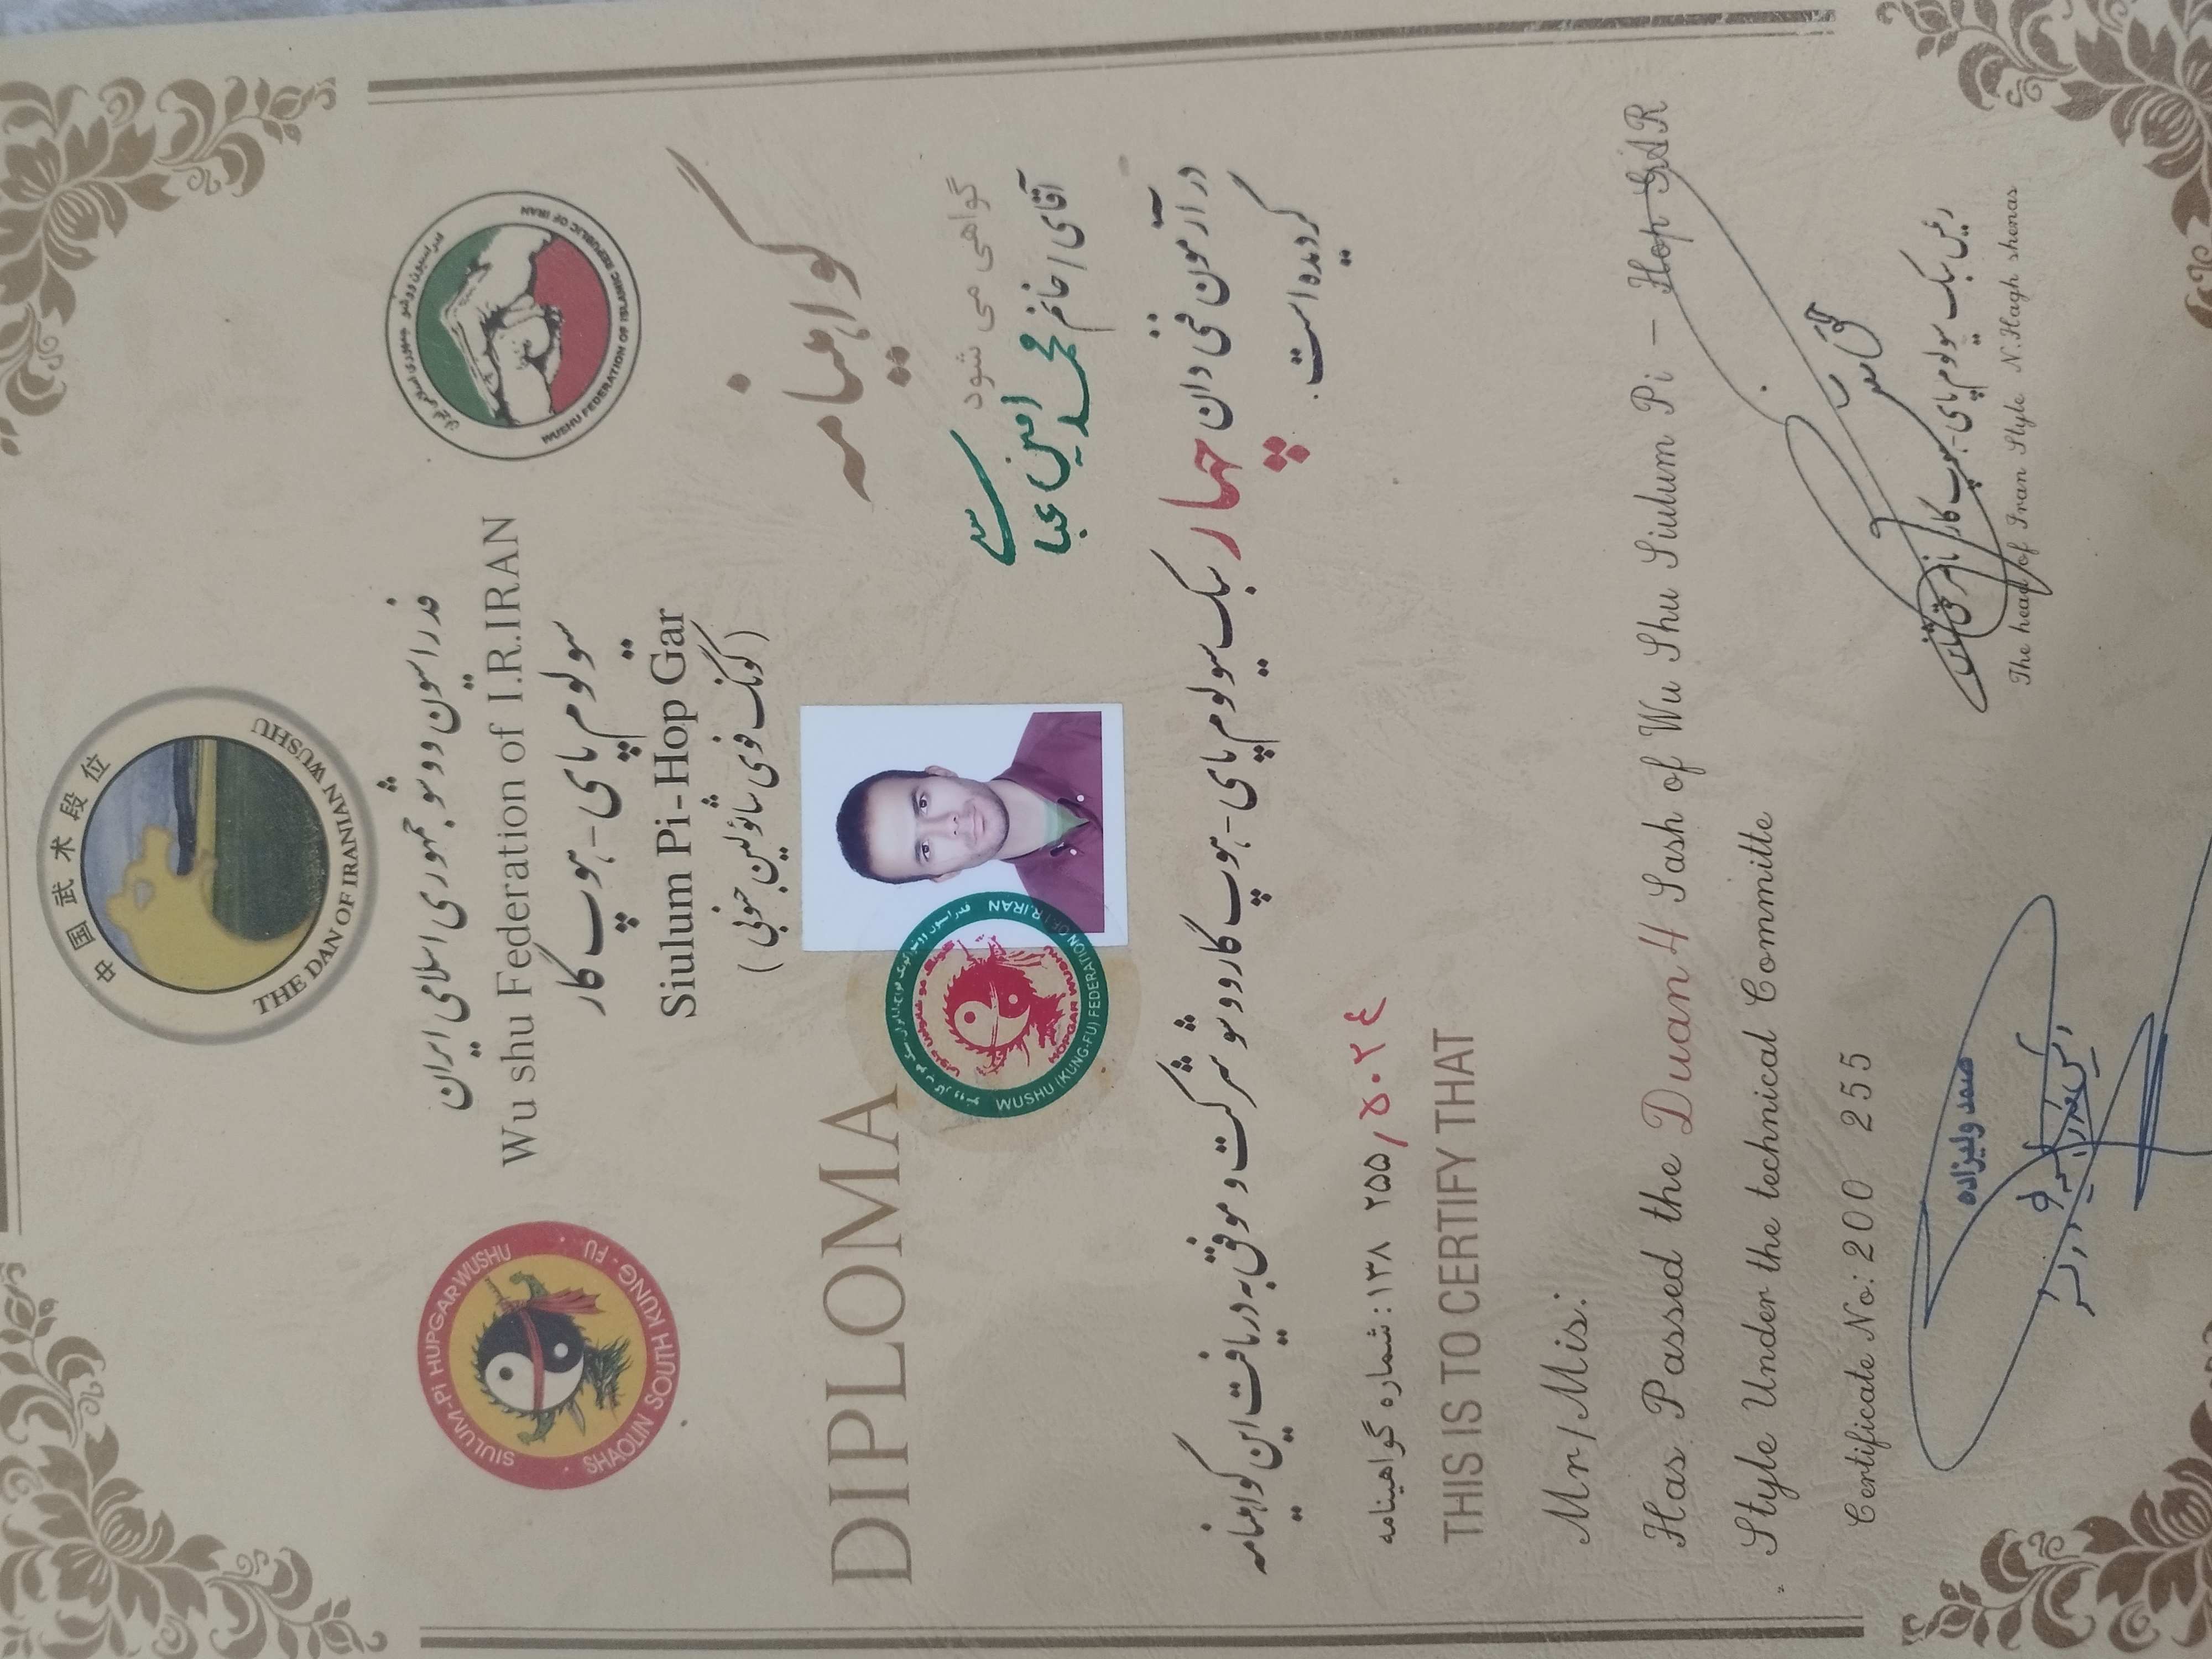 中国武术段位
THE DAN OF IRANIAN WUSHU
فدراسیون ووشو جمهوری اسلامی ایران
WUSHU FEDERATION OF ISLAMIC REPUBLIC OF IRAN
SIULUM-Pi HUPGAR WUSHU
SHAOLIN SOUTH KUNG-FU
فدراسیون ووشو جمهوری اسلامی ایران
Wu shu Federation of I.R.IRAN
سیولوم پای - هوپ گار
Siulum Pi-Hop Gar
(کونگ فوی شائولین جنوبی)
DIPLOMA
گواهینامه
گواهی می شود
آقای / خانم محمد امین عباسی
WUSHU (KUNG-FU) FEDERATION OF I.R.IRAN
HOPGAR WUSHU
در آزمون فنی دان چهار سبک سیولوم پای - هوپ گار ووشو شرکت و موفق به دریافت این گواهینامه
گردیده است.
شماره گواهینامه: ۱۳۸ ۲۵۵/۵۰۲۴
THIS IS TO CERTIFY THAT
Mr/Mis:
Has Passed the Duan 4 Sash of Wu Shu Siulum Pi - Hop GAR
Style Under the technical Committe
Certificate No: 200 255
صمد ولیزاده
رئیس سبک سیولوم پای - هوپ گار ناصر حق شناس
The head of Iran Style N.Hagh shenas